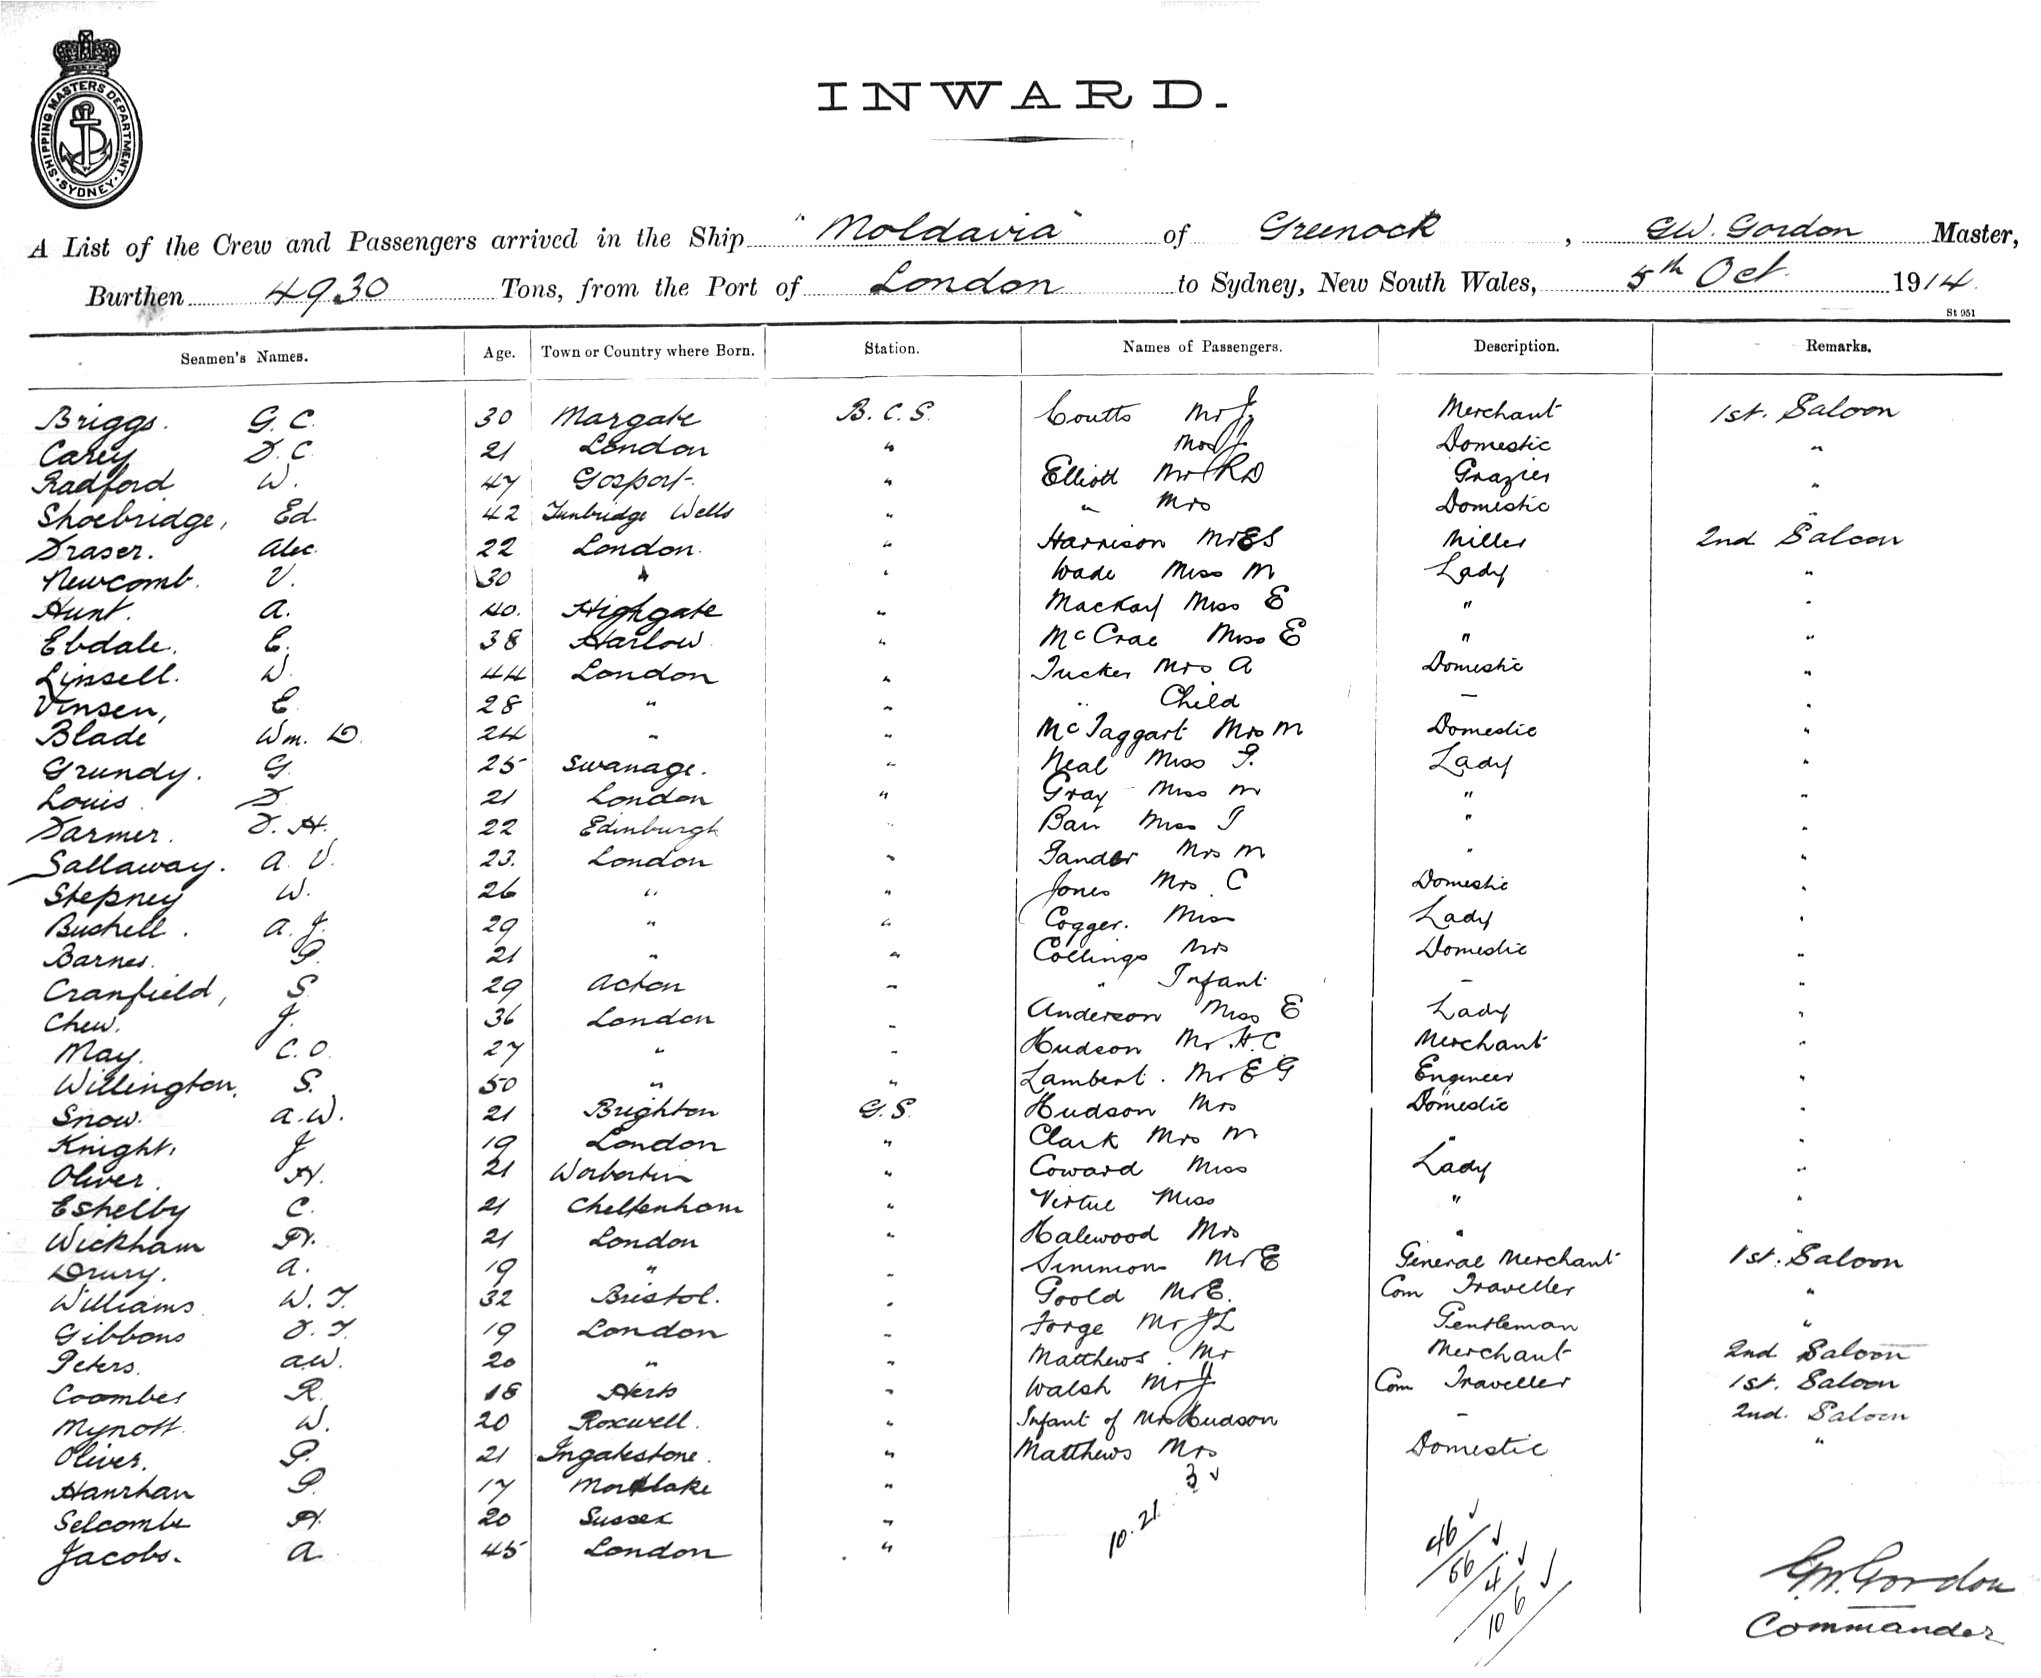 SHIPPING MASTERS DEPARTMENT. SYDNEY
INWARD.
A List of the Crew and Passengers arrived in the Ship "Moldavia" of Greenock, G.W. Gordon Master,
Burthen 4930 Tons, from the Port of London to Sydney, New South Wales, 5th Oct. 1914.
St 951
Seamen's Names. Age. Town or Country where Born. Station. Names of Passengers. Description. Remarks.
Briggs. G. C. 30 Margate B. C. S. Coutts Mr J. Merchant 1st. Saloon
Carey D. C. 21 London " Mrs J. Domestic "
Radford W. 47 Gosport. " Elliott Mr R D Grazier "
Shoebridge, Ed. 42 Tunbridge Wells " " Mrs Domestic "
Fraser. Alec. 22 London. " Harrison Mr E S Miller 2nd Saloon
Newcomb. V. 30 " " Wade Miss M Lady "
Hunt. A. 40. Highgate " Mackay Miss E " "
Ebdale. E. 38 Harlow. " McCrae Miss E " "
Linsell. W. 44 London " Tucker Mrs A Domestic "
Vinsen, E. 28 " " " Child – "
Blade Wm. D. 24 " " McTaggart Mrs M Domestic "
Grundy. G. 25 Swanage. " Neal Miss F. Lady "
Louis. D 21 London " Gray Miss M " "
Farmer. F. H. 22 Edinburgh " Miss " "
Sallaway. A. V. 23. London " Mrs M " "
Stepney W. 26 " " Jones Mrs C Domestic "
Bushell. A. J. 29 " " Cogger. Miss Lady "
Barnes. P. 21 " " Collings Mrs Domestic "
Cranfield, S. 29 Acton " " Infant – "
Chew. J. 36 London " Anderson Miss E Lady "
May. C. O. 27 " " Hudson Mr. H. C. Merchant "
Willington. S. 50 " " Lambert. Mr E G Engineer "
Snow. A. W. 21 Brighton G. S. Hudson Mrs Domestic "
Knight, J 19 London " Clark Mrs M " "
Oliver. H. 21 " Coward Miss Lady "
Eshelby C. 21 Cheltenham " Virtue Miss " "
Wickham H. 21 London " Halewood Mrs " "
Drury. A. 19 " " Simmons Mr E General Merchant 1st. Saloon
Williams W. T. 32 Bristol. " Goold Mr E. Com Traveller "
Gibbons F. T. 19 London " Forge Mr J L Gentleman "
Peters. A W. 20 " " Matthews. Mr Merchant 2nd Saloon
Coombes R. 18 Herts " Walsh Mr J Com Traveller 1st. Saloon
Mynott W. 20 Roxwell. " Infant of Mrs Hudson – 2nd. Saloon
Oliver. P. 21 Ingatestone. " Matthews Mrs Domestic "
Hanrhan P. 17 Mortlake " 3
Selcombe H. 20 Sussex " 10.21 46
Jacobs. A. 45 London " 56
4
106
G.W. Gordon
Commander